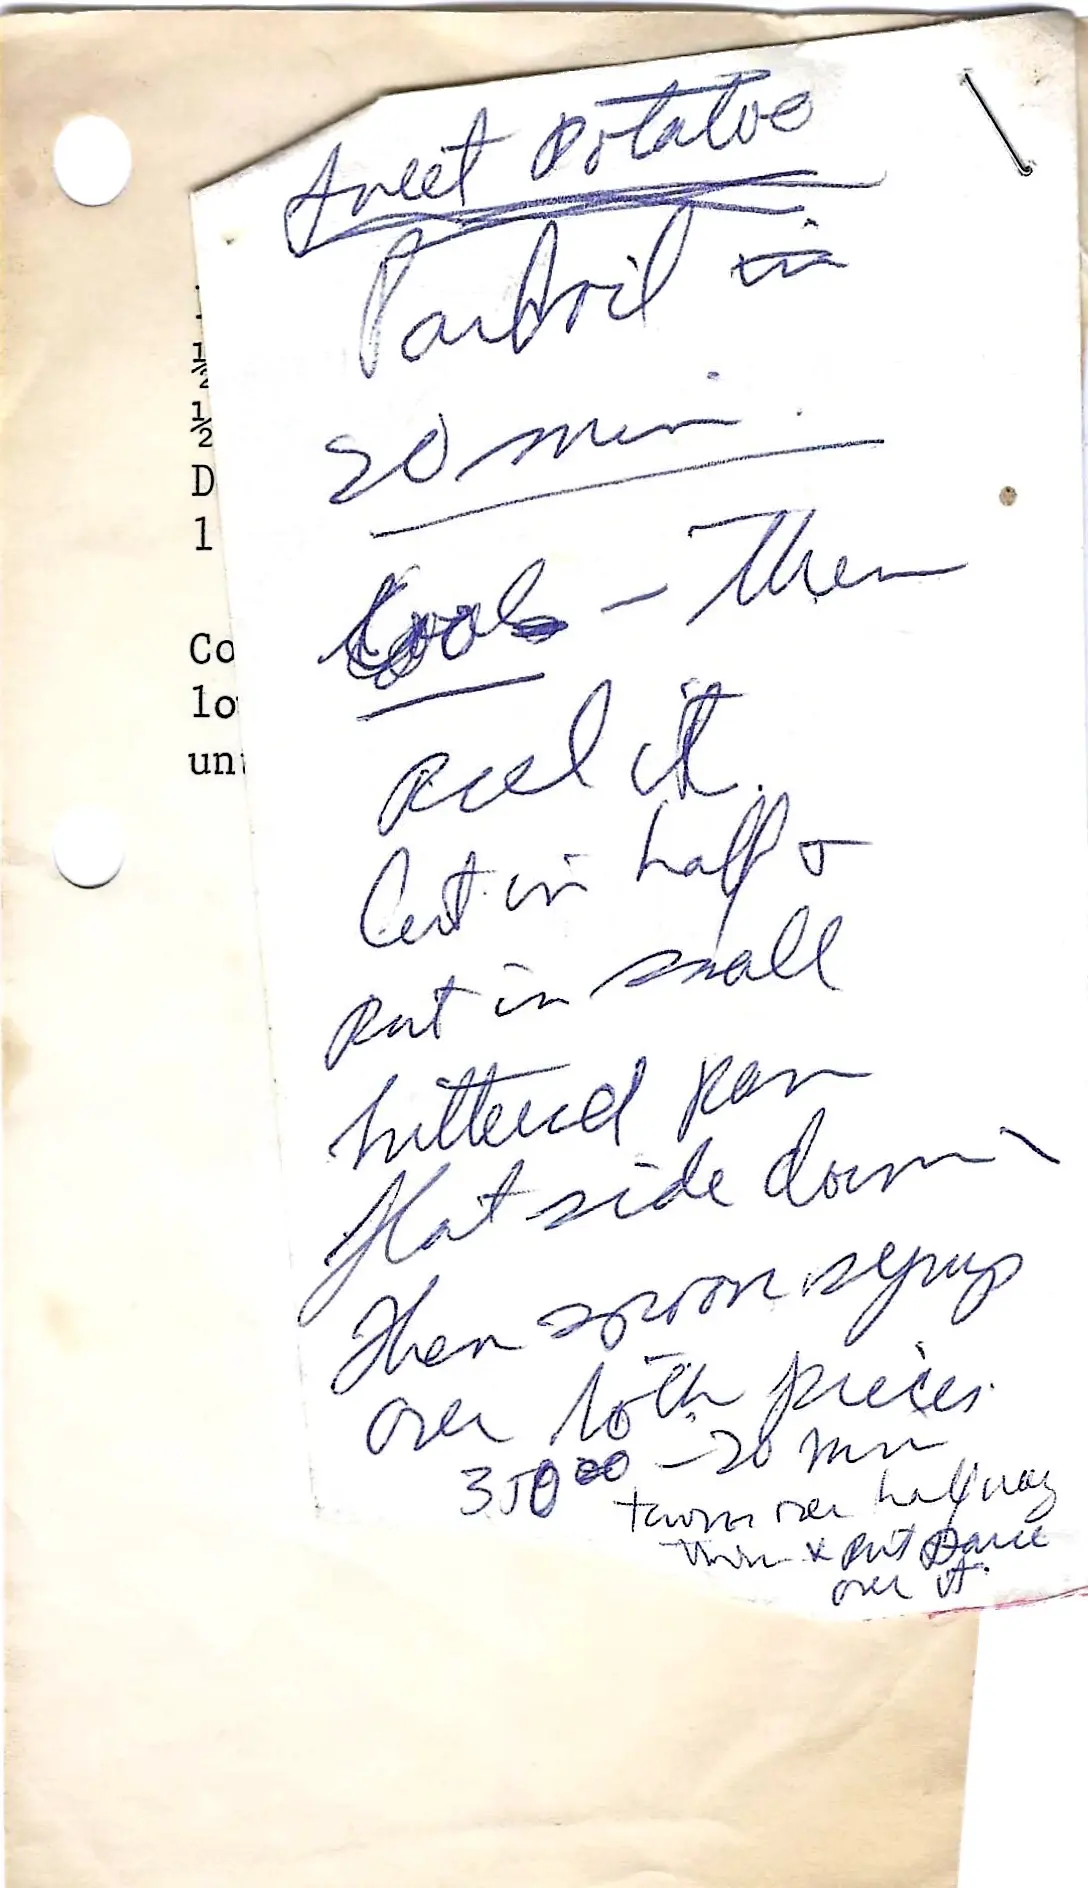 Sweet Potatoe
Parboil in
20 min.
Cool - Then
peel it.
Cut in half &
Put in small
buttered pan
flat side down
then spoon syrup
over both pieces.
350°° - 20 min
turn over halfway
thru & put sauce
over it.
1/2
1/2
D
1
Co
lo
unt